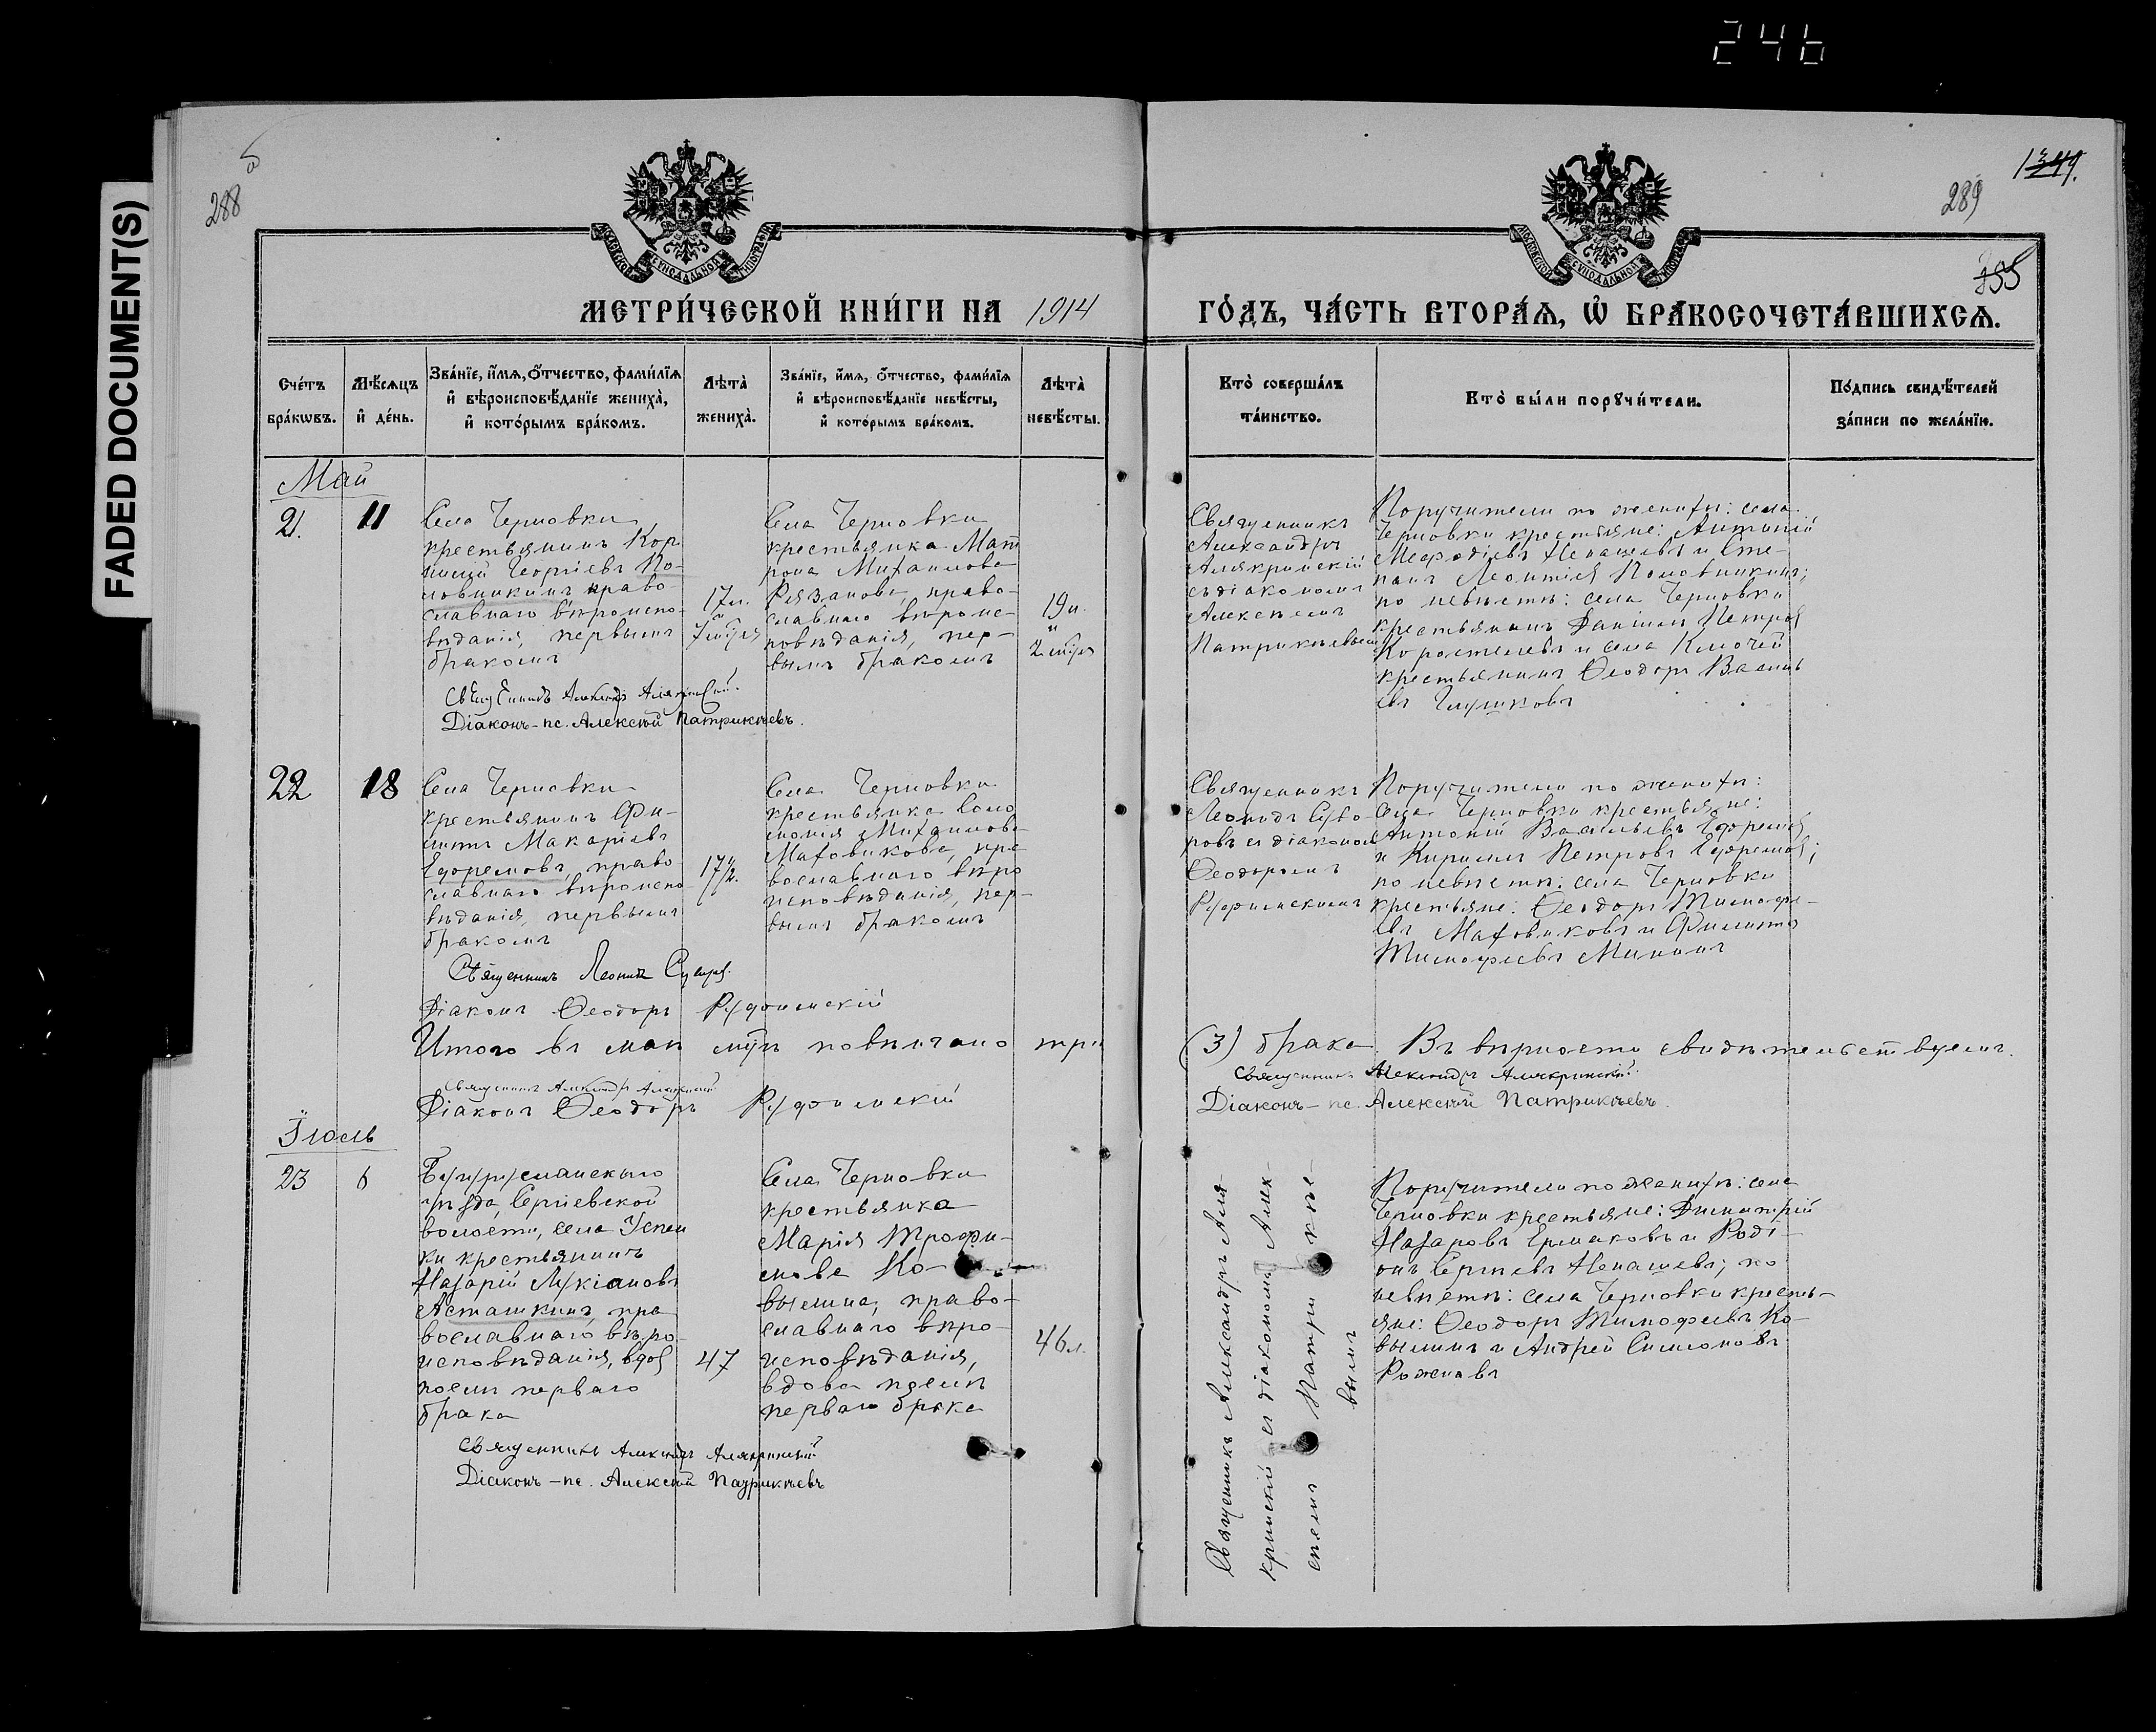 246
FADED DOCUMENT(S)
288
289
МЕТРИ́ЧЕСКОЙ КНИ́ГИ НА 1914
ГО́ДЪ, ЧА́СТЬ ВТОРА́Ѧ, Ѽ БРАКОСОЧЕТА́ВШИХСѦ.
Сче́тъ бра́кѡвъ.
Мѣ́сѧцъ и҆ де́нь.
Зва́нїе, и҆́мѧ, ѻ҆́тчество, фами́лїѧ и҆ вѣроисповѣ́данїе жениха̀, и҆ кото́рымъ бра́комъ.
Лѣ́та̀ жениха̀.
Зва́нїе, и҆́мѧ, ѻ҆́тчество, фами́лїѧ и҆ вѣроисповѣ́данїе невѣ́сты, и҆ кото́рымъ бра́комъ.
Лѣ́та̀ невѣ́сты.
Кто̀ соверша́лъ та́инство.
Кто̀ бы́ли порꙋчи́тели.
По́дпись свидѣ́телей за́писи по жела́нїю.
Май
21.
11
Села Черновки
крестьянинъ Кор
нилій Георгіевъ По-
ловинкинъ право
славнаго вѣроиспо-
вѣданія, первымъ
бракомъ
17 л.
и
7 мѣс
Села Черновки
крестьянка Мат
рона Михаилова
Рязанова право-
славнаго вѣроис-
повѣданія, пер-
вымъ бракомъ
19 л.
и
2 мѣс
Священникъ
Александръ
Алякринскій
съ діакономъ
Алексѣемъ
Патрикѣевымъ
Поручители по женихѣ: села
Черновки крестьяне:
Меѳодіевъ Ненашевъ и Сте-
панъ Леонтіев Половинкинъ;
по невѣстѣ: села Черновки
крестьянинъ Даніилъ Петров
Коростелевъ и села Ключей
крестьянинъ Ѳеодоръ Василь
евъ
Священникъ Александр Алякринскій.
Діаконъ-пс. Алексѣй Патрикѣевъ.
22
18
Села Черновки
крестьянинъ Фи-
липпъ Макаріевъ
Ефремовъ, право
славнаго вѣроиспо
вѣданія, первымъ
бракомъ
17½.
Села Черновки
крестьянка Соло
монія Михаилова
Маховикова, пра
вославнаго вѣро
исповѣданія, пер-
вымъ бракомъ
Священникъ
Леонидъ Суво-
ровъ съ діакономъ
Ѳеодоромъ
Руфимскимъ
Поручители по женихѣ:
села Черновки крестьяне:
Антоній Васильевъ Ефремов
и Кириллъ Петровъ Ефремов;
по невѣстѣ: села Черновки
крестьяне: Ѳеодоръ Тимофе-
евъ Маховиковъ и Филиппъ
Тимофеевъ Мининъ
Священникъ Леонид
Діаконъ Ѳеодоръ Руфимскій
Итого въ маѣ мцѣ повѣнчано три
(3) брака. Въ вѣрности свидѣтельствуемъ.
Священникъ Александр Алякринскій
Діаконъ Ѳеодоръ Руфимскій
Священникъ Александръ Алякринскій.
Діаконъ-пс. Алексѣй Патрикѣевъ.
Іюль
23
6
Бугурусланскаго
уѣзда, Сергіевской
волости, села Успен
ки крестьянинъ
Назарій Лукіановъ
Асташкинъ, пра
вославнаго вѣро-
исповѣданія, вдов
послѣ перваго
брака
47
Села Черновки
крестьянка
Марія Трофи-
мова Ко-
вылина, право-
славнаго вѣро-
исповѣданія,
вдова послѣ
перваго брака
46 л.
Священникъ Александръ Аля-
кринскій съ діакономъ Алек-
сѣемъ Патрикѣе-
вымъ
Поручители по женихѣ: села
Черновки крестьяне: Димитрій
Назаровъ Ермаковъ и Роді-
онъ Сергѣевъ Ненашевъ; по
невѣстѣ: села Черновки кресть-
яне: Ѳеодоръ Тимофеевъ Ко-
вылинъ и Андрей Симоновъ
Рожновъ
Священникъ Александръ Алякринскій
Діаконъ-пс. Алексѣй Патрикѣевъ